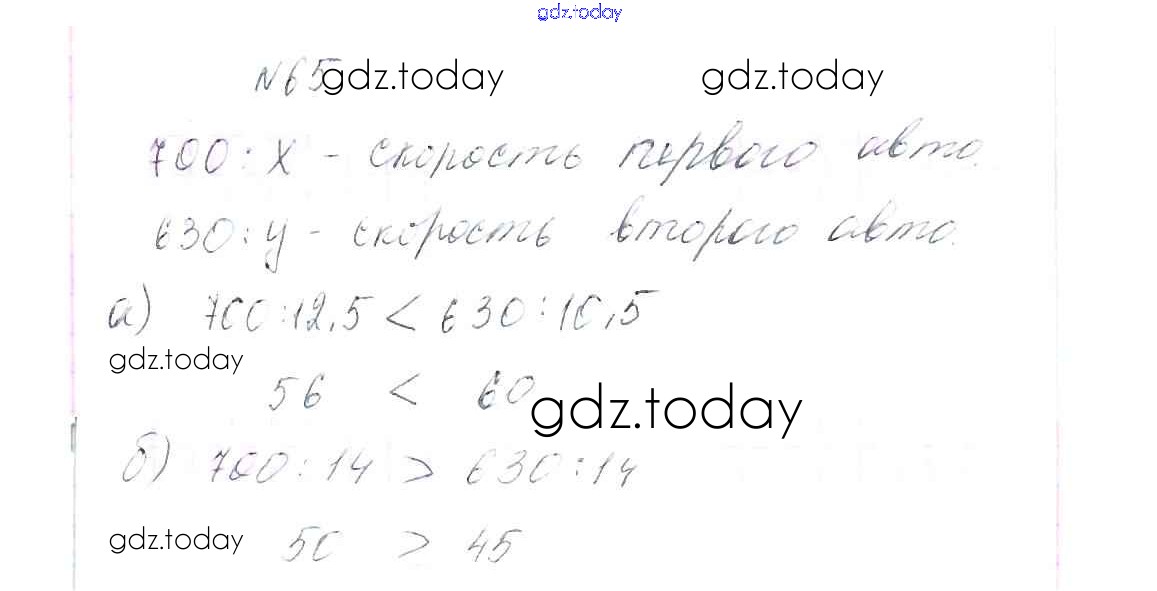 gdz.today
№65 gdz.today gdz.today
700 : x - скорость первого авто.
630 : y - скорость второго авто.
а) 700 : 12,5 < 630 : 10,5
gdz.today
56 < 60 gdz.today
б) 700 : 14 > 630 : 14
gdz.today 50 > 45